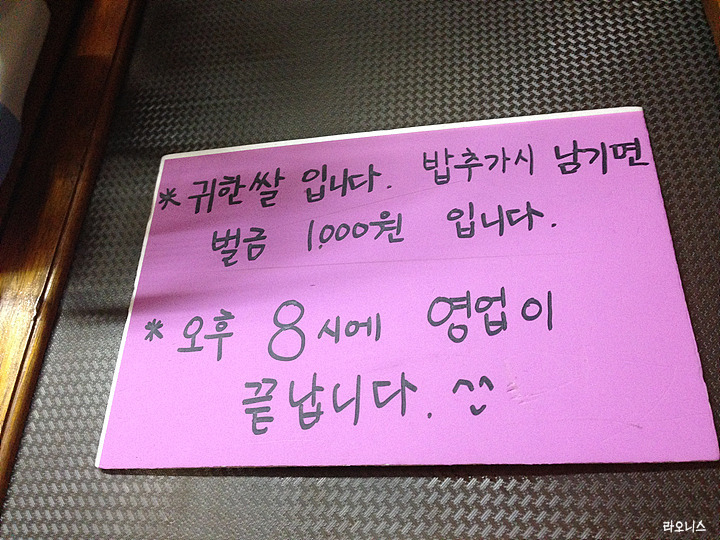 * 귀한쌀 입니다. 밥추가시 남기면
벌금 1,000원 입니다.
* 오후 8시에 영업이
끝납니다. ^^
라오니스